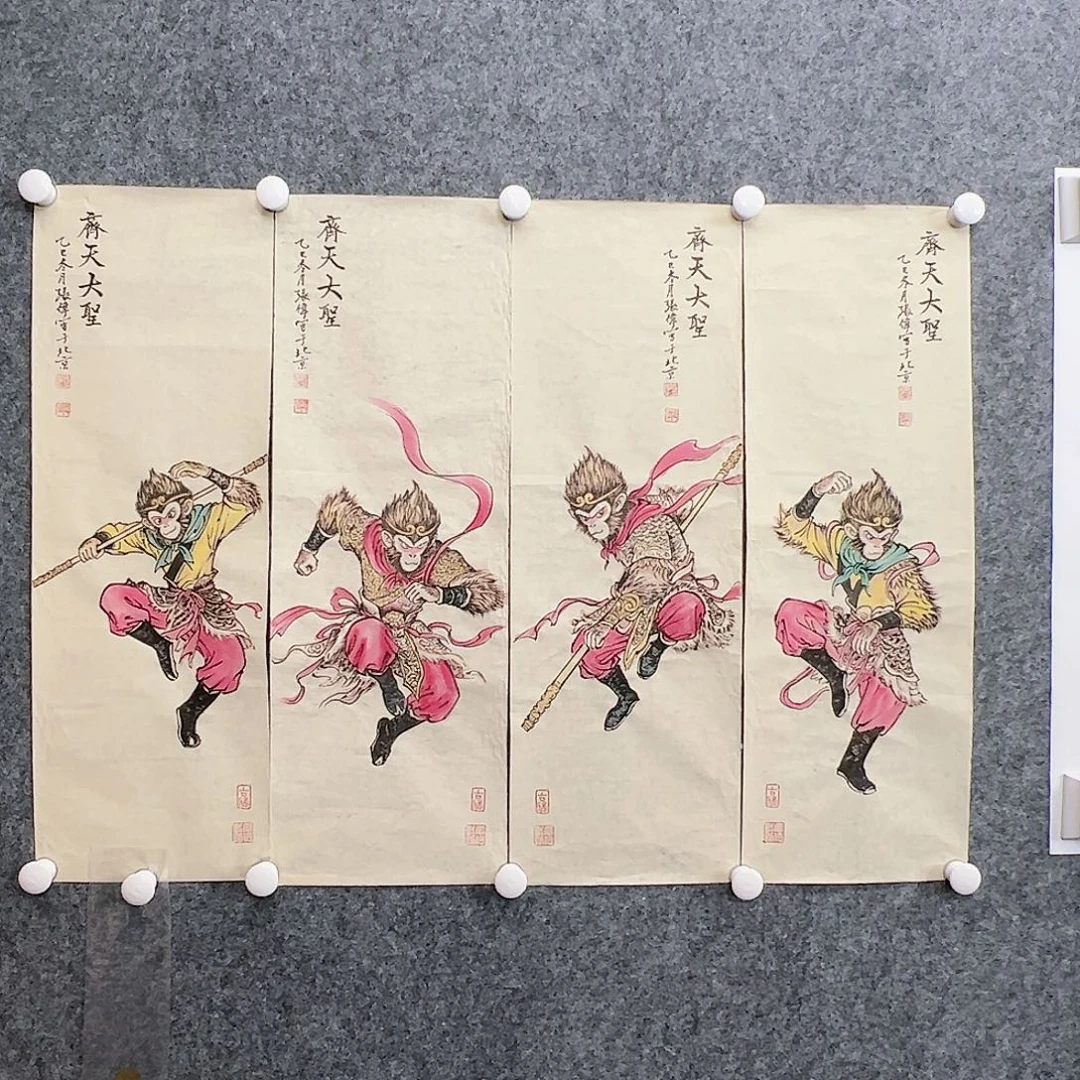 齊天大聖
乙巳冬月張偉寫于北京
齊天大聖
乙巳冬月張偉寫于北京
齊天大聖
乙巳冬月張偉寫于北京
齊天大聖
乙巳冬月張偉寫于北京